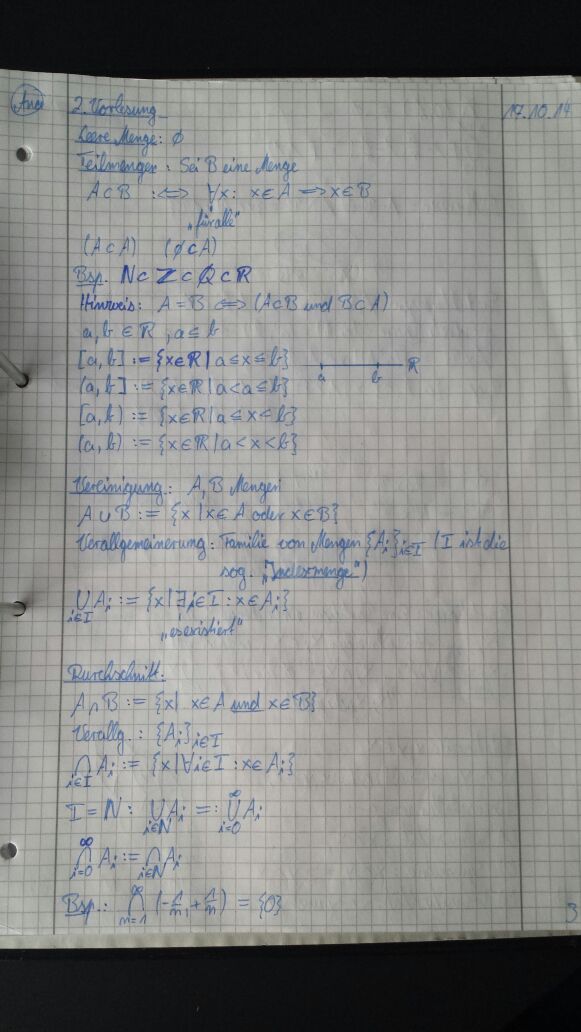 AnaI 2. Vorlesung 17.10.14
Leere Menge: ∅
Teilmengen: Sei B eine Menge
A⊂B :⇔ ∀x: x∈A ⇒ x∈B
„für alle"
(A⊂A) (∅⊂A)
Bsp. ℕ⊂ℤ⊂ℚ⊂ℝ
Hinweis: A=B ⇔ (A⊂B und B⊂A)
a,b∈ℝ, a≤b
[a,b] := {x∈ℝ | a≤x≤b} ℝ
a b
(a,b] := {x∈ℝ | a<a≤b}
[a,b) := {x∈ℝ | a≤x<b}
(a,b) := {x∈ℝ | a<x<b}
Vereinigung: A,B Mengen
A∪B := {x | x∈A oder x∈B}
Verallgemeinerung: Familie von Mengen {A_i}_{i∈I} (I ist die
sog. „Indexmenge")
⋃_{i∈I} A_i := {x | ∃i∈I : x∈A_i}
„es existiert"
Durchschnitt:
A∩B := {x | x∈A und x∈B}
Verallg.: {A_i}_{i∈I}
⋂_{i∈I} A_i := {x | ∀i∈I : x∈A_i}
I=ℕ: ⋃_{i∈ℕ} A_i =: ⋃_{i=0}^{∞} A_i
⋂_{i=0}^{∞} A_i := ⋂_{i∈ℕ} A_i
Bsp.: ⋂_{n=1}^{∞} (-1/n, +1/n) = {0}
3